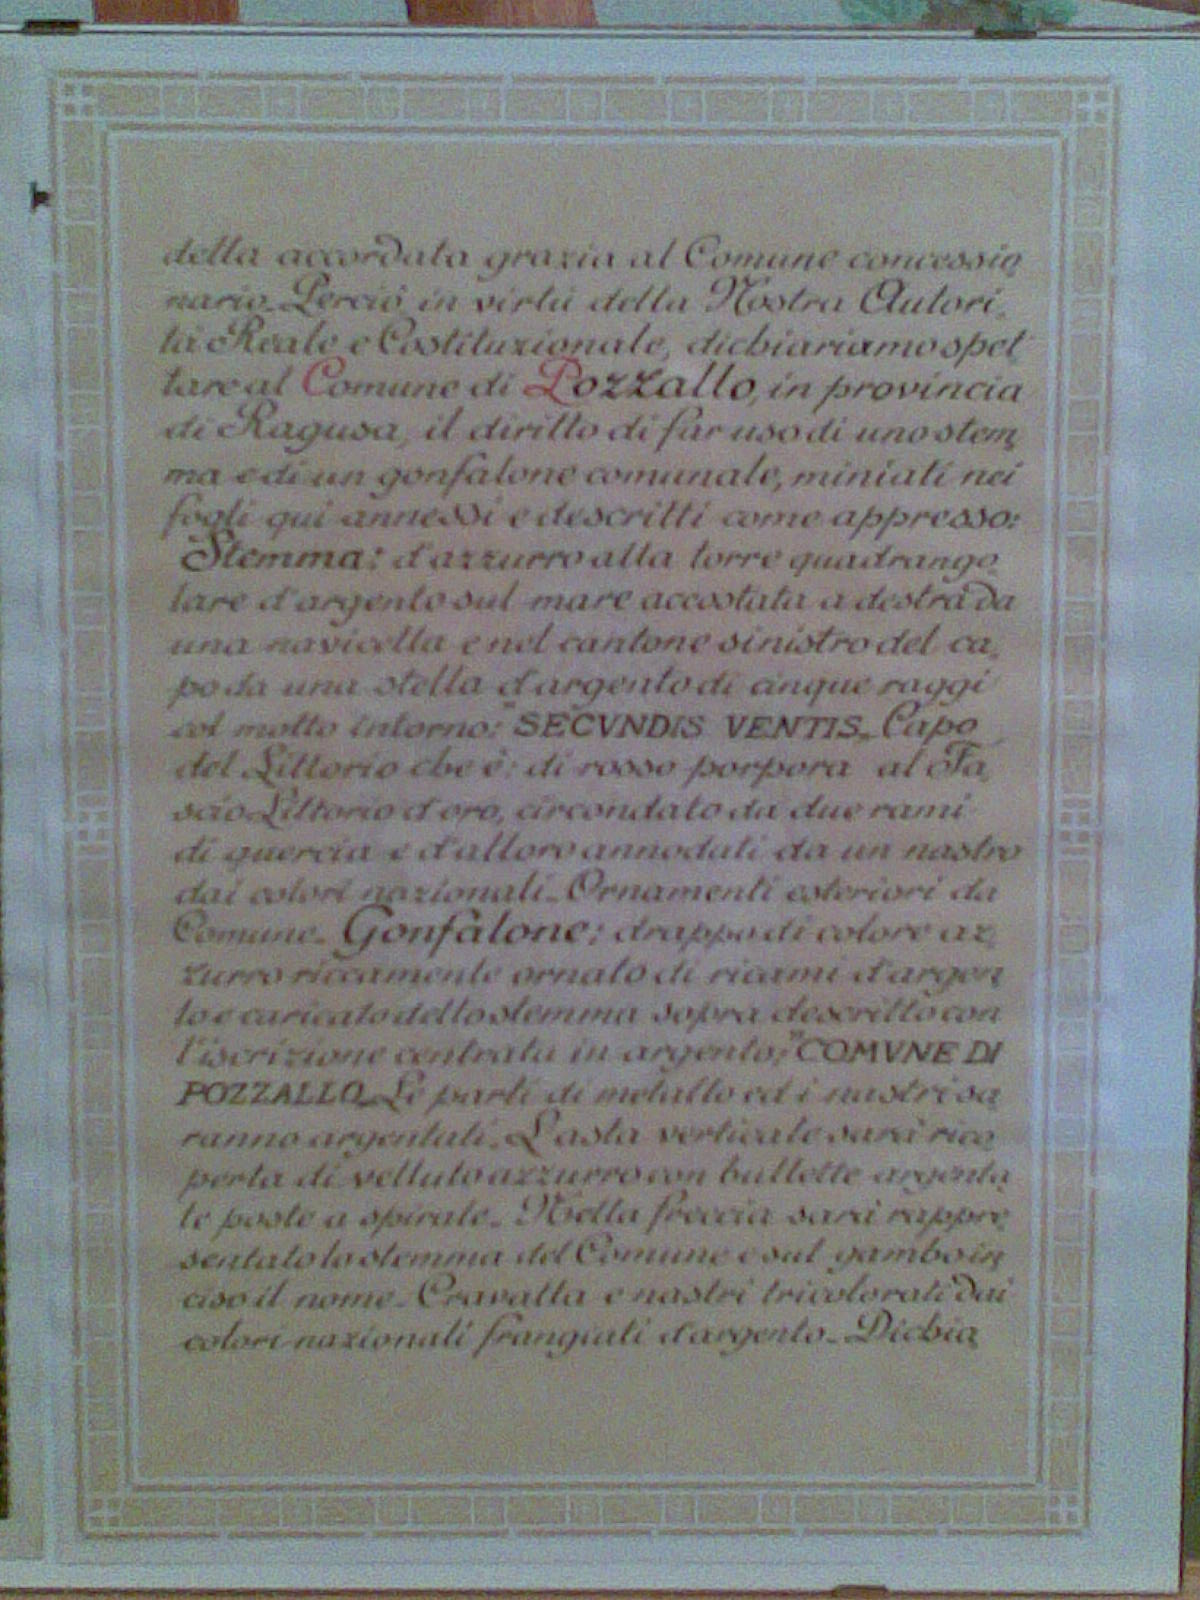 della accordata grazia al Comune concessio
nario. Perciò in virtù della Nostra Autori-
tà Reale e Costituzionale, dichiariamo spet
tare al Comune di Pozzallo, in provincia
di Ragusa, il diritto di far uso di uno stem
ma e di un gonfalone comunale, miniati nei
fogli qui annessi e descritti come appresso:
Stemma: d'azzurro alla torre quadrango
lare d'argento sul mare accostata a destra da
una navicella e nel cantone sinistro del ca-
po da una stella d'argento di cinque raggi
col motto intorno: "SECVNDIS VENTIS_ Capo
del Littorio che è: di rosso porpora al Fa
scio Littorio d'oro, circondato da due rami
di quercia e d'alloro annodati da un nastro
dai colori nazionali_ Ornamenti esteriori da
Comune_ Gonfalone: drappo di colore az
zurro riccamente ornato di ricami d'argen
to e caricato dello stemma sopra descritto con
l'iscrizione centrata in argento: "COMVNE DI
POZZALLO_ Le parti di metallo ed i nastri sa
ranno argentati_ L'asta verticale sarà rico
perta di velluto azzurro con bullette argenta
te poste a spirale_ Nella freccia sarà rappre
sentato lo stemma del Comune e sul gambo in
ciso il nome_ Cravatta e nastri tricolorati dai
colori nazionali frangiati d'argento_ Dichia